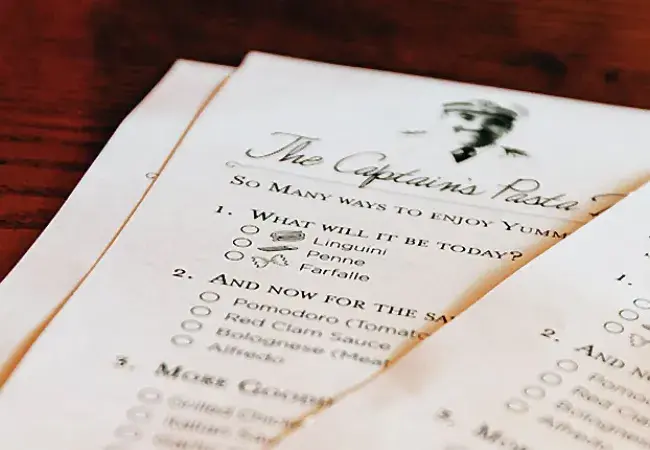 The Captain's Pasta
So Many ways to enjoy Yumm
1. What will it be today?
Linguini
Penne
Farfalle
2. And now for the sa
Pomodoro (Tomato
Red Clam Sauce
Bolognese (Meat
Alfredo
3. More Good
1.
2. And no
Pomodo
Red Cla
Bologne
Alfredo
3. Mo